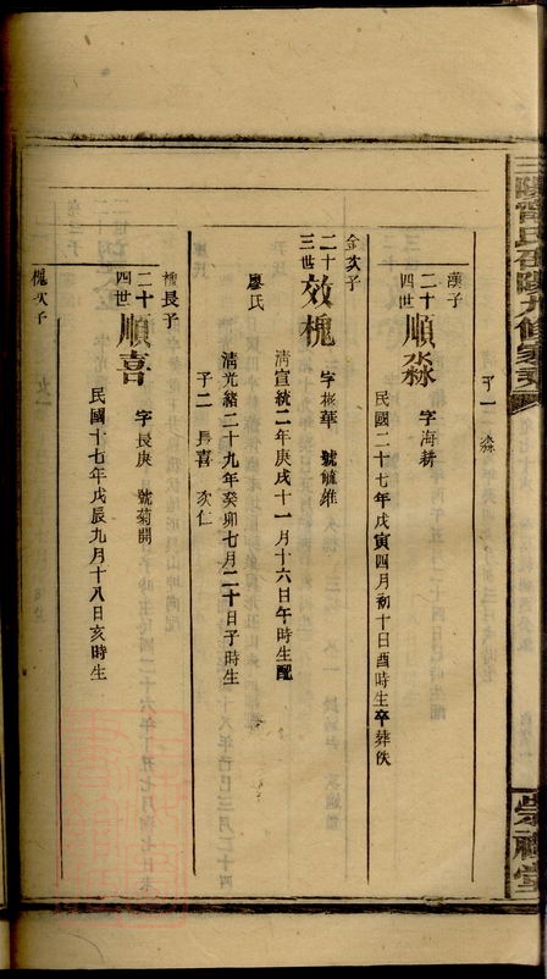 子一 淼
漢子
二十四世 順淼 字海耕
民國二十七年戊寅四月初十日酉時生卒葬佚
金次子
二十三世 效槐 字彬華 號毓維
清宣統二年庚戌十一月十六日午時生配
廖氏
清光緒二十九年癸卯七月二十日子時生
子二 長喜 次仁
槐長子
二十四世 順喜 字長庚 號菊開
民國十七年戊辰九月十八日亥時生
槐次子